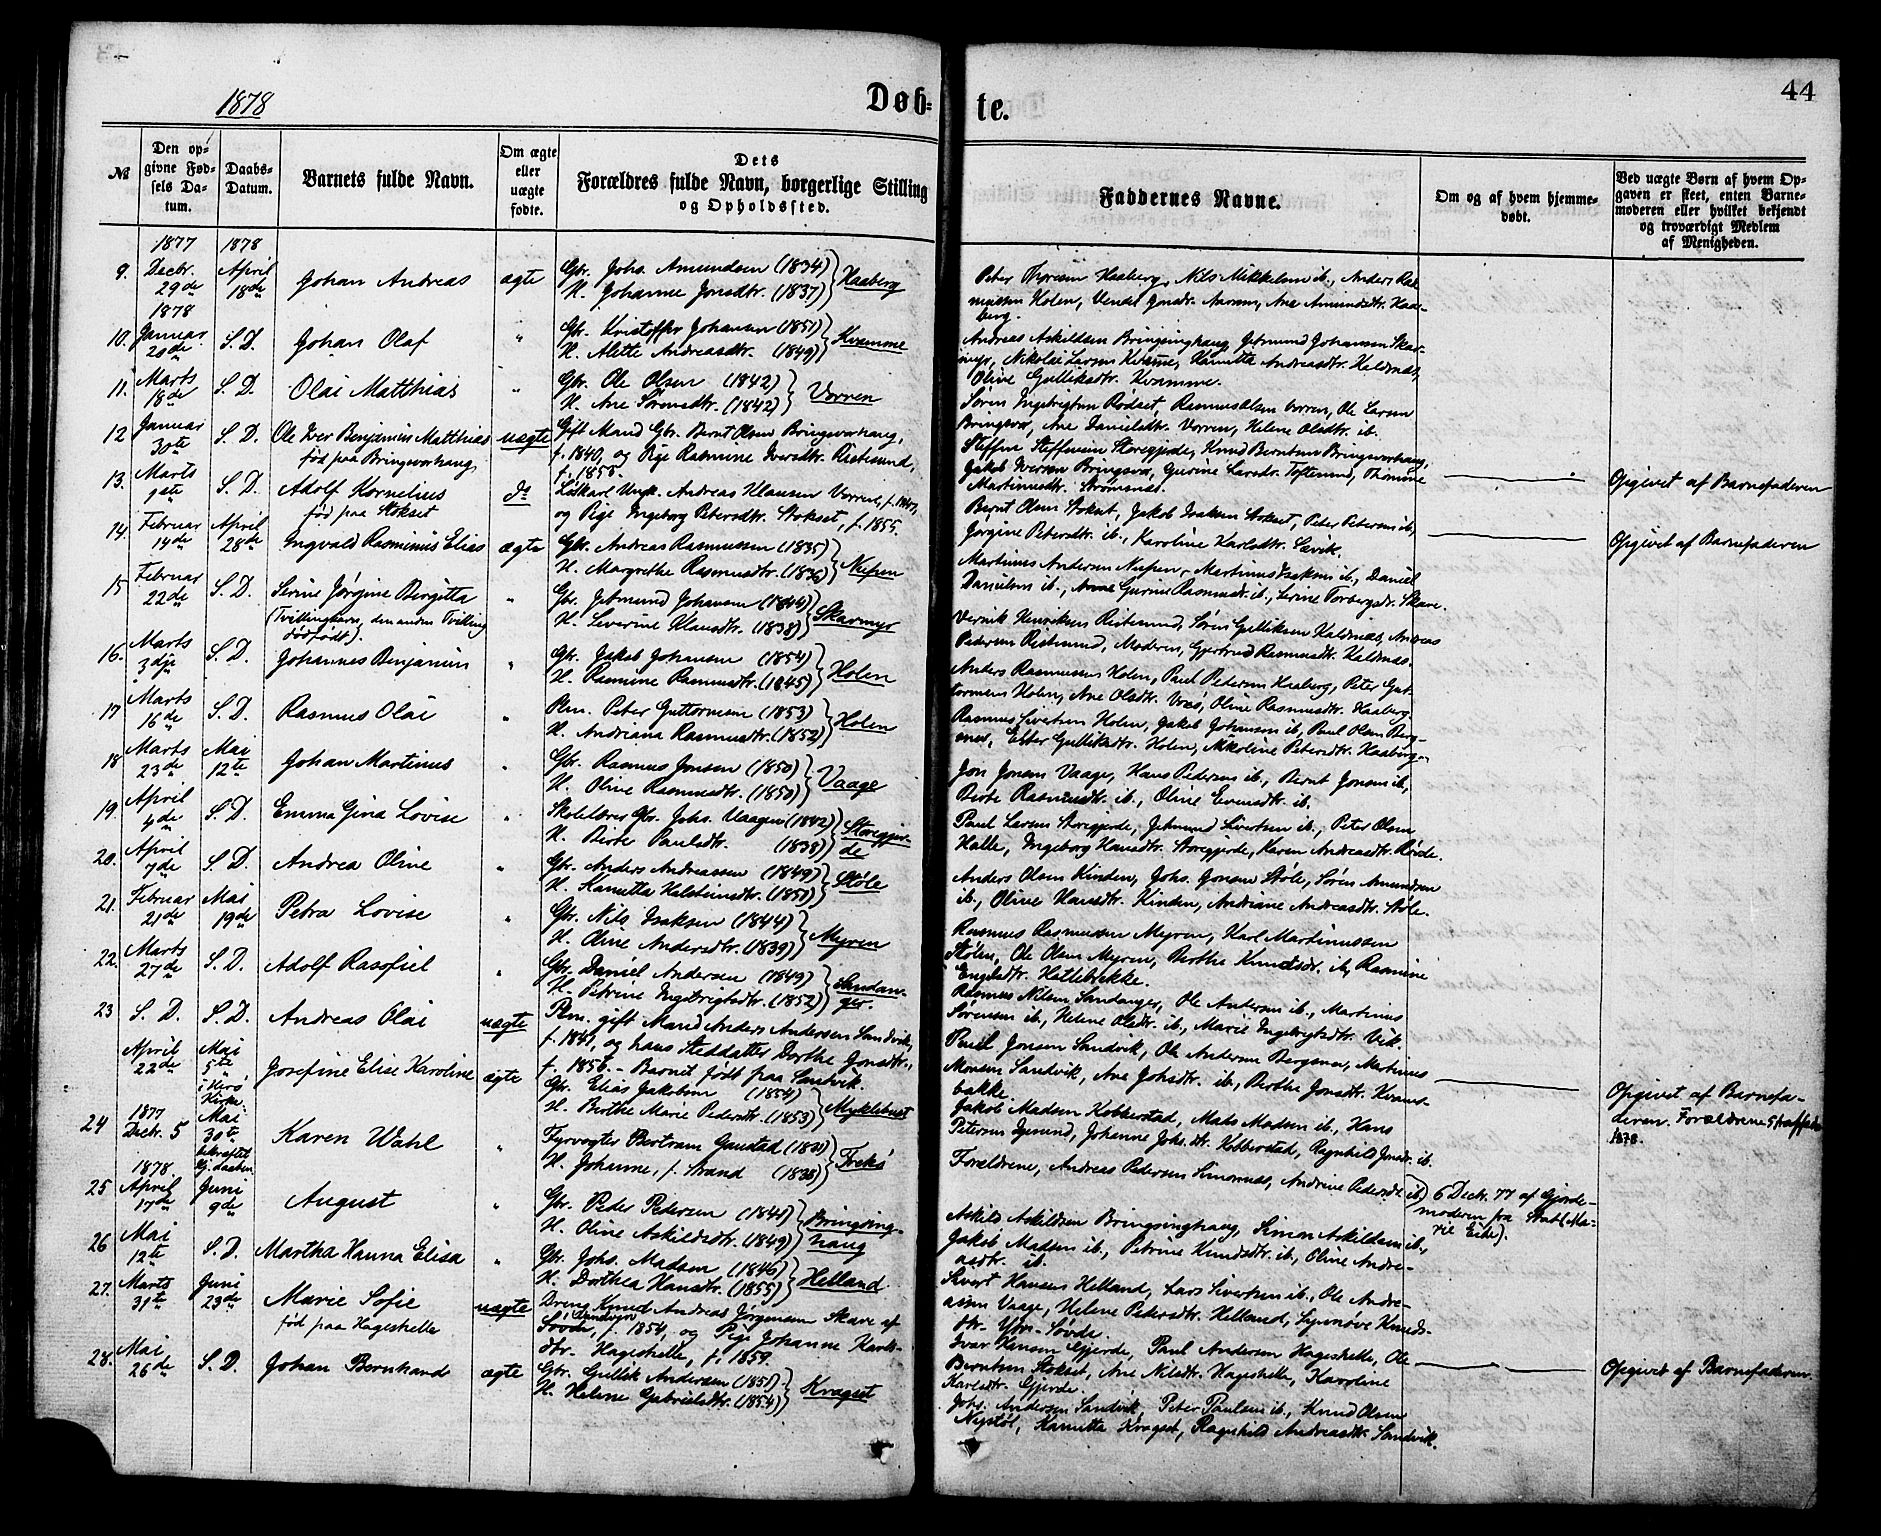 1878
Døb=
te.
44
№
Den op=
givne Fød=
sels Da=
tum.
Daabs=
Datum.
Barnets fulde Navn.
Om ægte
eller
uægte
fødte.
Dets
Forældres fulde Navn, borgerlige Stilling
og Opholdssted.
Faddernes Navne.
Om og af hvem hjemme=
døbt.
Ved uægte Børn af hvem Op=
gaven er skeet, enten Barne=
moderen eller hvilket bekjendt
og troværdigt Medlem
af Menigheden.
1877 1878
9. Decbr. 29de April 18de Johan Andreas ægte Gbr. Johs. Amundsen (1834)
H. Johanne Jonsdtr. (1837) Haaberg
Peter Thoresen Haaberg, Nils Mikkelsen ib., Anders Ras-
mussen Holen, Vendel Jonsdr. Aarseu, Ane Amundsdtr. Haa-
berg.
1878
10. Januar 20de S. D. Johan Olaf " Gbr. Kristoffer Johansen (1851)
H. Mette Andreasdtr. (1849) Kvamme
Andreas Askildsen Bringsinghaug, Jetmund Johansen Skar-
myr, Nikolai Larsen Kvamme, Hanitta Andreasdtr. Haldnæs,
Oline Gulliksdtr. Kvamme.
11. Marts 18de S. D. Olai Matthias " Gbr. Ole Olsen (1842)
H. Ane Sørensdtr. (1842) Vorren
Søren Ingebrigtsen Rodset, Rasmus Olsen Vorren, Ole Larsen
Bringsvor, Ane Danielsdtr. Vorren, Helene Olsdtr. ib.
12 Januar 30te S. D. Ole Iver Benjamin Matthias uægte Gift Mand Gbr. Bernt Olsen Bringsvorhaug,
født paa Bringsvorhaug f. 1840, og Pige Rasmine Iversdtr. Ristesund,
f. 1856.
Steffen Steffensen Storegjerde, Knud Berntsen Bringsvorhaug,
Jakob Iversen Bringsvor, Gurine Larsdr. Toftesund, Thomine
Martinusdtr. Strømsnes.
Opgivet af Barnefaderen
13. Marts 9de S. D. Adolf Kornelius do Løskarl Ungk. Andreas Klausen Vorren, f. 1847,
født paa Stokset og Pige Ingeborg Petersdtr. Stokset, f. 1855.
Bernt Olsen Stokset, Jakob Isaksen Stokset, Peter Petersen ib,
Jørgine Petersdtr. ib., Karoline Karlsdtr. Levik.
Opgivet af Barnefaderen
14. Februar 14de April 28de Ingvald Rasminus Elias ægte Gbr. Andreas Rasmussen (1835)
H. Margrethe Rasmusdtr. (1836) Neipen
Martinus Andersen Neipen, Martinus Isaksen ib., Daniel
Danielsen ib., Gurine Rasmusdr. ib., Serine Torbergsdr. Skare.
15 Februar 22de S. D. Serine Jørgine Birgitta " Gbr. Jetmund Johansen (1844)
(Tvillingbarn, den anden Tvilling
dødfødt).
H. Severine Klausdtr. (1838) Skarmyr
Vernik Henriksen Ristesund, Søren Gulliksen Haldnæs, Andreas
Pedersen Ristesund, Moderen, Gjertrud Rasmusdtr. Haldnæs.
16. Marts 3dje S. D. Johannes Benjamin " Gbr. Jakob Johansen (1854)
H. Rasmine Rasmusdtr. (1845) Holen
Anders Rasmussen Holen, Paul Pedersen Haaberg, Peter Gut-
tormsen Holen, Ane Olsdtr. Vraas, Oline Rasmusdtr. Haaberg
17 Marts 16de S. D. Rasmus Olai " Plm. Peter Guttormsen (1853)
H. Andriana Rasmusdtr. (1852) Holen
Rasmus Sivertsen Holen, Jakob Johansen ib, Paul Olsen Berg-
snes, Ester Gulliksdtr. Holen, Nikoline Petersdtr. Haaberg.
18 Marts 23de Mai 12te Johan Martinus " Gbr. Rasmus Jonsen (1850)
H. Oline Rasmusdtr. (1850) Vaage
Jon Jonsen Vaage, Hans Pedersen ib., Bernt Jonsen ib,
Berte Rasmusdtr. ib., Oline Evensdtr. ib.
19. April 4de S. D. Emma Gina Lovise " Skolelærer Gbr. Johs. Vaagen (1842)
H. Berte Paulsdtr. (1838) Storegjer-
de
Paul Larsen Storegjerde, Jetmund Sivertsen ib., Peter Olsen
Halle, Ingeborg Hansdtr. Storegjerde, Karen Andreasdtr. Røvde.
20. April 7de S. D. Andrea Oline " Gbr. Anders Andreassen (1849)
H. Hanitta Halsteinsdtr. (1850) Støle
Anders Olsen Kinden, Johs. Jonsen Støle, Søren Amundsen
ib., Oline Hansdtr. Kinden, Andriane Andreasdtr. Støle.
21. Februar 21de Mai 19de Petra Lovise " Gbr. Nils Isaksen (1844)
H. Oline Andersdtr. (1839) Myren
Rasmus Rasmussen Myren, Karl Martinussen
Stølen, Ole Olsen Myren, Berthe Knudsdr. ib, Rasmine
Engelsdtr. Hatlebrekke.
22. Marts 27de S. D. Adolf Rasofiel " Gbr. Daniel Andersen (1849)
H. Petrine Ingebrigtsdtr. (1852) Sandan-
ger.
Rasmus Nilsen Sandanger, Ole Andersen ib., Martinus
Sørensen ib., Helene Olsdtr. ib., Marie Ingebrigtsdtr. Vik.
23 S. D. S. D. Andreas Olai uægte Plm. gift Mand Anders Andersen Sandvik,
f. 1841, og hans Steddatter Dorthe Jonsdtr.,
f. 1856. - Barnet født paa Sandvik.
Paul Jonsen Sandvik, Ole Andersen Bergsnes, Martinus
Monsen Sandvik, Ane Johsdtr. ib., Berthe Jonsdtr. Kvams-
bakke.
Opgivet af Barnefa-
deren. Forældrene straffede
1878.
April 22de Mai 5te i Herø Kirke. Josefine Elise Karoline ægte Gbr. Elias Jakobsen (1854)
H. Berthe Marie Pedersdtr. (1853) Myklebust
Jakob Madsen Kobberstad, Mats Madsen ib., Hans
Petersen Igesund, Johanne Johs.dt. Kobberstad, Ragnhild Jonsdr. ib.
24 1877 Decbr. 5 Mai 30te bekræftet Hj.daaben Karen Wahl " Fyrvogter Bertram Gaustad (1830)
H. Johanne, f. Strand (1838) Frekø
Forældrene, Andreas Pedersen Simonnes, Andrine Pedersdt. ib.
6 Decbr. 77 af Gjorde-
moderen fra Stadt (Ma-
rie Eide).
1878
25 April 17de Juni 9de August " Gbr. Peder Pedersen (1841)
H. Oline Askildsdtr. (1849) Bringsing-
haug
Askild Askildsen Bringsinghaug, Simon Askildsen ib.,
Jakob Madsen ib., Petrine Knudsdtr. ib., Oline Andre-
asdtr. ib.
26 Mai 12te S. D. Martha Hanna Elisa " Gbr. Johs. Madsen (1846)
H. Dorthea Hansdtr. (1855) Helland.
Sivert Hansen Helland, Lars Sivertsen ib., Ole Andre-
assen Vaage, Helene Petersdtr. Helland, Synnøve Knuds-
dtr. Ytre-Søvde.
27. Marts 31te Juni 23de Marie Sofie uægte Dreng Knud Andreas Jørgensen Skare af
født paa Hageskelle Søvde, Sandvær f. 1854, og Pige Johanne Karls-
dtr. Hageskelle, f. 1859.
Ivar Hansen Gjerde, Paul Andersen Hageskelle, Ole
Berntsen Stokset, Ane Nilsdtr. Hageskelle, Karoline
Karlsdtr. Gjerde.
Opgivet af Barnefaderen
28. Mai 26de S. D. Johan Bernhard ægte Gbr. Gullik Andersen (1851)
H. Helene Gabrielsdtr. (1854) Kragset
Johs. Andersen Sandvik, Peter Paulsen ib., Knud Olsen
Nystøl, Hanitta Kragset, Ragnhild Andreasdtr. Sandvik.